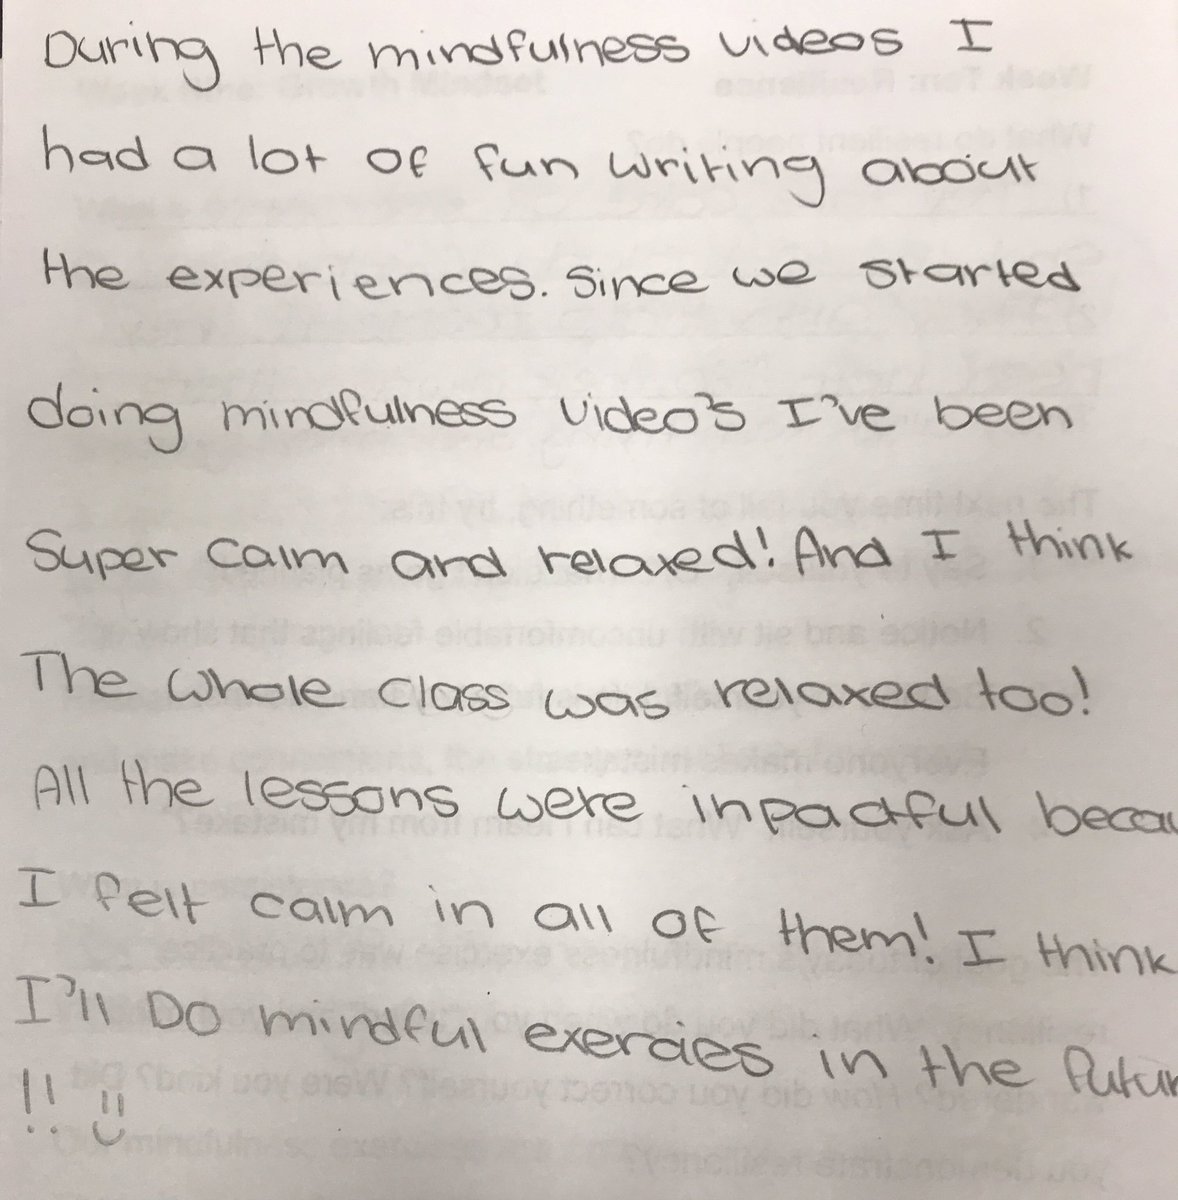 During the mindfulness videos I
had a lot of fun writing about
the experiences. Since we started
doing mindfulness video's I've been
Super calm and relaxed! And I think
The whole class was relaxed too!
All the lessons were inpactful becau
I felt calm in all of them! I think
I'll Do mindful exercies in the futur
!! :)